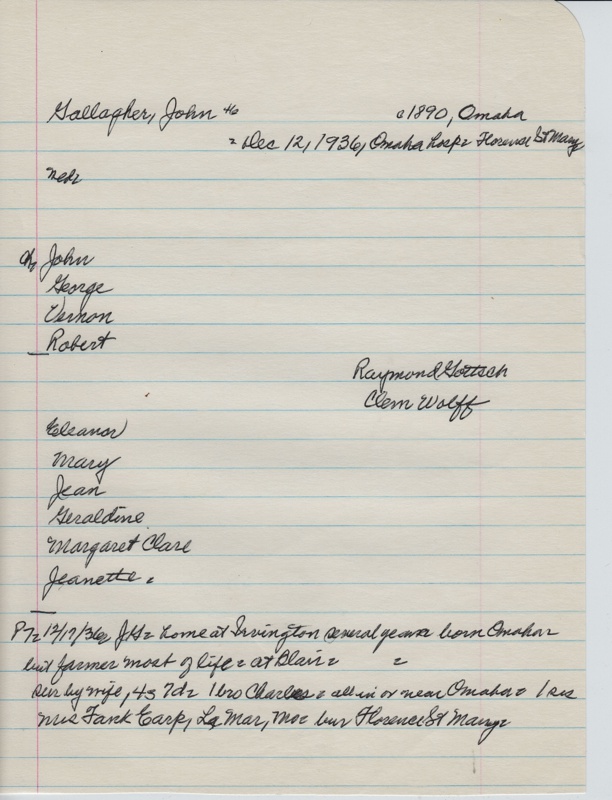 Gallagher, John 46 c1890, Omaha
= Dec 12, 1936, Omaha hosp = Florence St Mary
Neb
Ch John
George
Vernon
Robert
Raymond Gottsch
Clem Wolff
Eleanor
Mary
Jean
Geraldine
Margaret Clare
Jeanette =
PT= 12/17/36 JG= home at Irvington several years born Omaha=
but farmer most of life = at Blair = =
sur by wife, 4s 7d= 1 bro Charles = all in or near Omaha = 1 sis
mrs Fank Earp, La Mar, Mo= bur Florence St Mary=